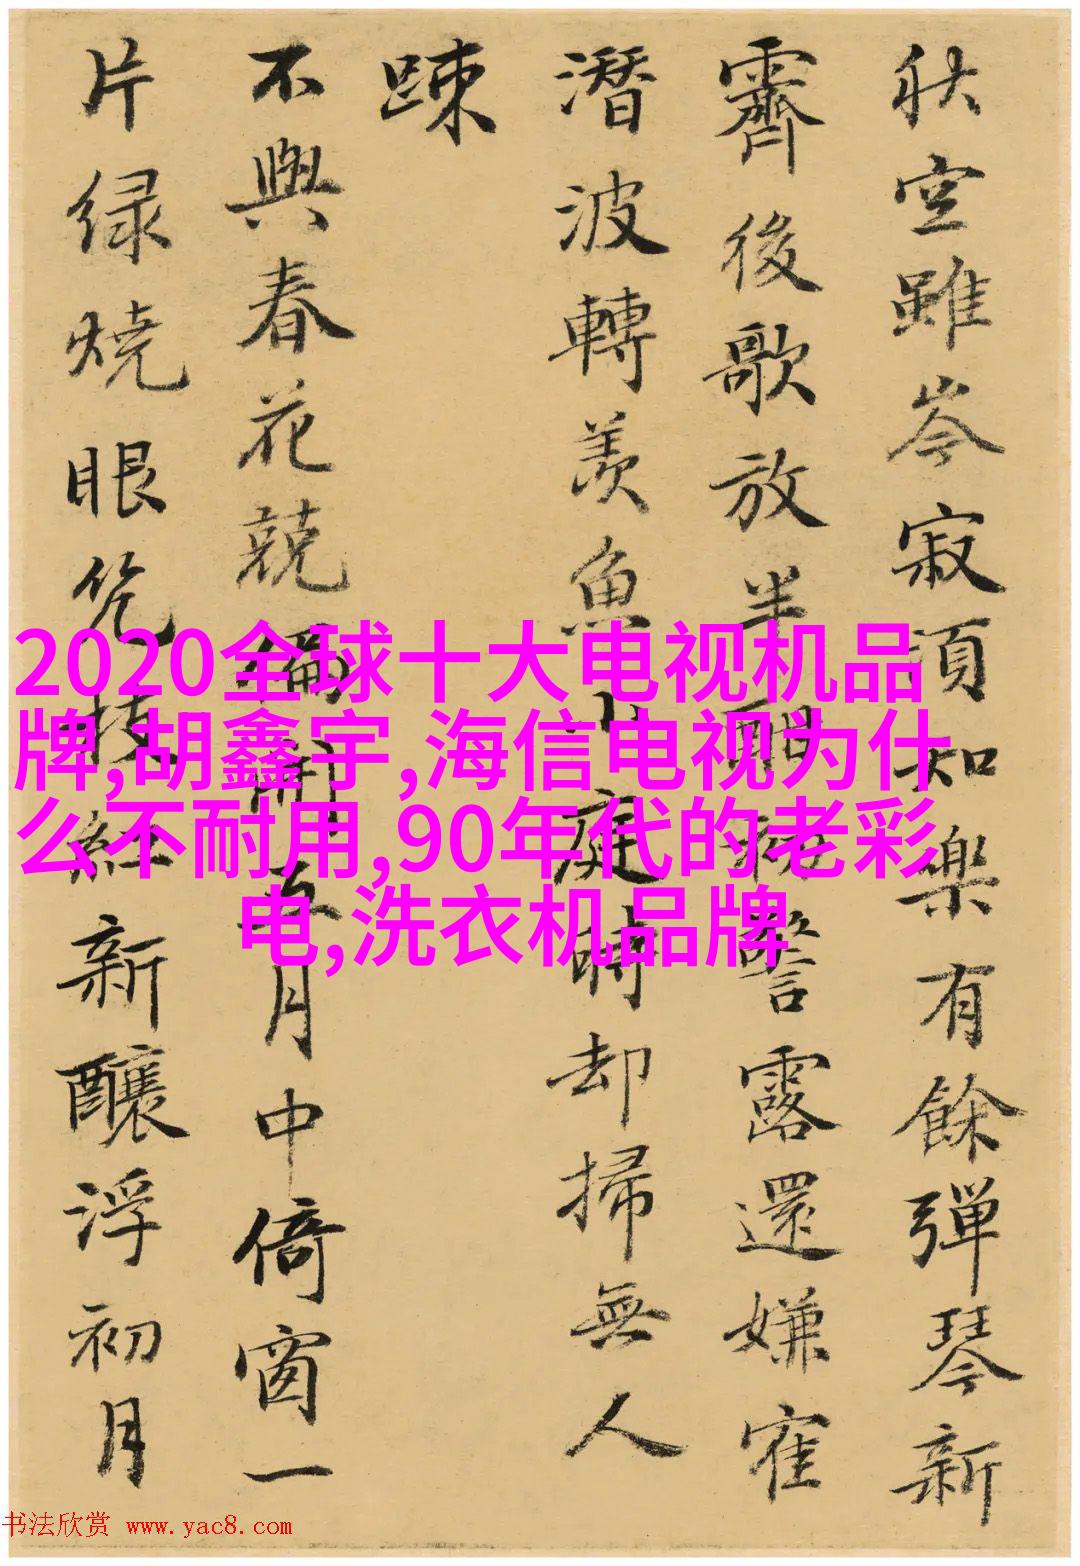 秋空雖岑寂湏知樂有餘彈琴新
霽後歌放半酣警露還嫌寉
潛波轉羨魚小庭時却掃無人
踈
不與春花競偏開五月中倚窗一
片緑燒眼枝紅新釀浮初月
2020全球十大电视机品
牌,胡鑫宇,海信电视为什
么不耐用,90年代的老彩
电,洗衣机品牌
书法欣赏 www.yac8.com